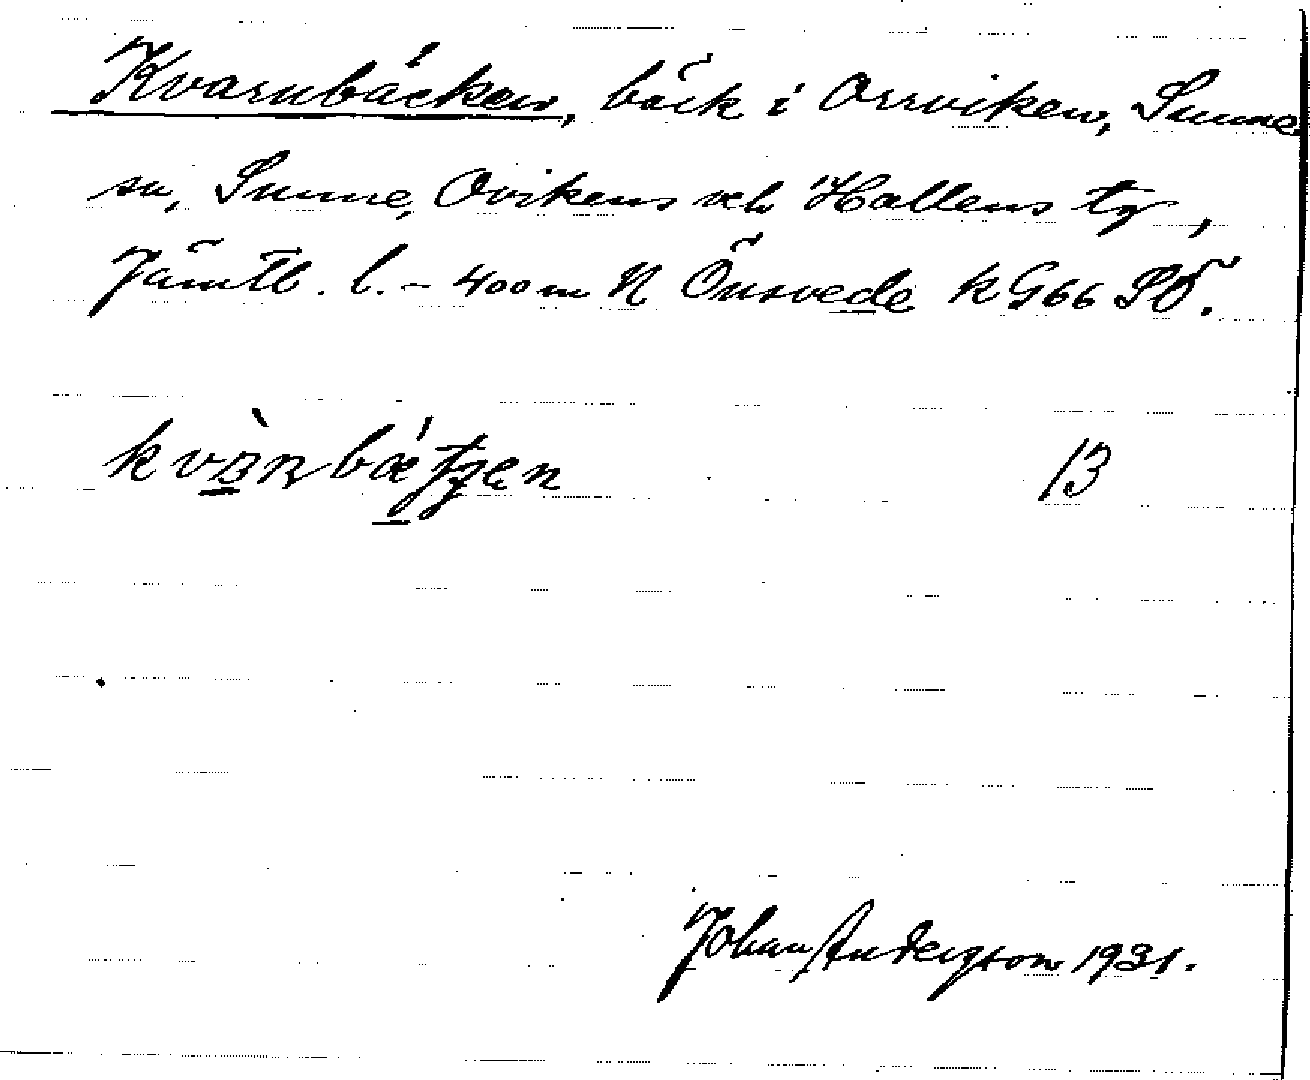 Kvarnbäcken, bäck i Orrviken, Sunne
sn, Sunne, Ovikens och Hallens tg,
Jämtl. l. – 400 m N Önsvede k G66 SO.
13
Johan Anderzson 1931.